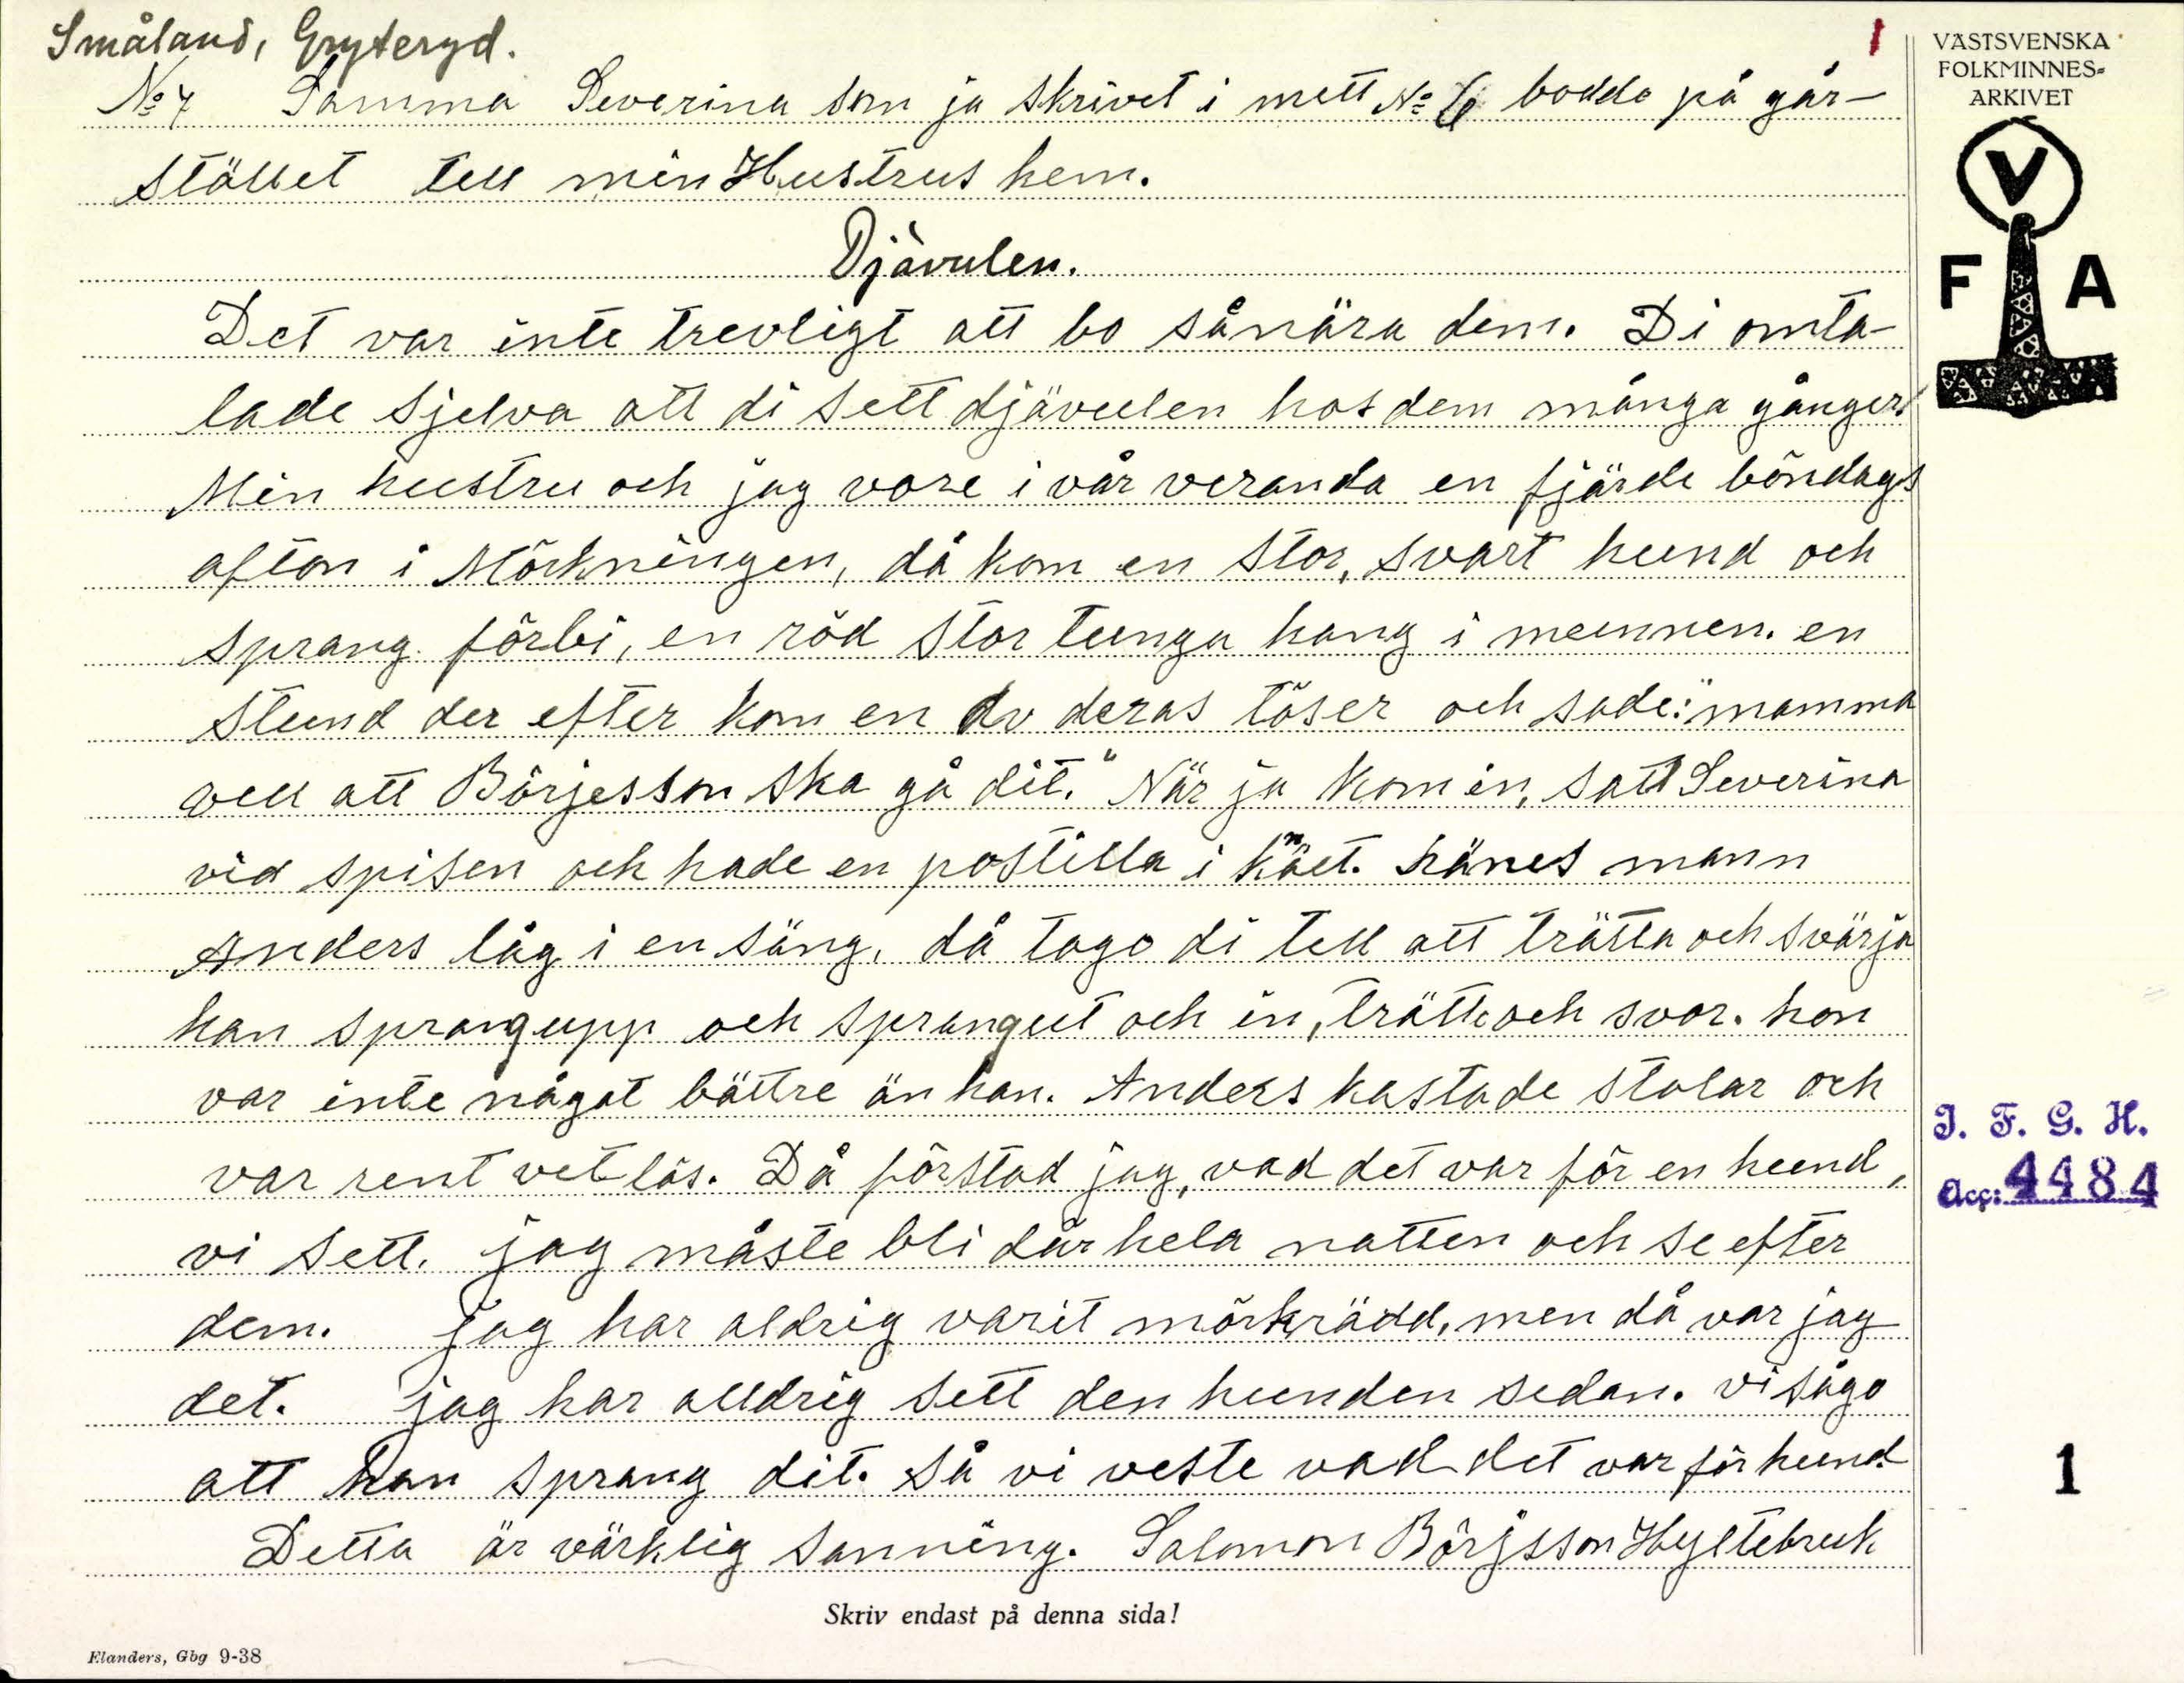 Småland, Gryteryd.
1
VÄSTSVENSKA
FOLKMINNES-
ARKIVET
V
F A
No 7 Samma Severina som ja skrivet i mett No 6 bodde på går-
stället tell min Hustrus hem.
Djävulen.
Det var inte trevligt att bo sånära dem. Di omta-
lade sjelva att di sett djävulen hos dem många gånger.
Min hustru och jag vore i vår veranda en fjärde böndags
afton i Mörkningen, då kom en stor, svart hund och
sprang förbi, en röd stor tunga hang i munnen. en
stund der efter kom en av deras töser och sade: "mamma
vell att Börjesson ska gå dit." När ja kom in, satt Severina
vid spisen och hade en postilla i knäet. hänes mann
Anders låg i en säng, då togo di tell att trätta och svärja
han sprang upp och sprang ut och in, trätte och svor. hon
var inte något bättre än han. Anders kastade stolar och
var rent vetlös. Då förstod jag, vad det var för en hund,
vi sett. jag måste bli där hela natten och se efter
dem. jag har aldrig varit mörkrädd, men då var jag
det. jag har alldrig sett den hunden sedan. vi sågo
att han sprang dit. så vi veste vad det var för hund
Detta är värklig sanning. Salomon Börjsson Hyltebruk
I. F. G. H.
Acc: 4484
1
Skriv endast på denna sida!
Elanders, Gbg 9-38